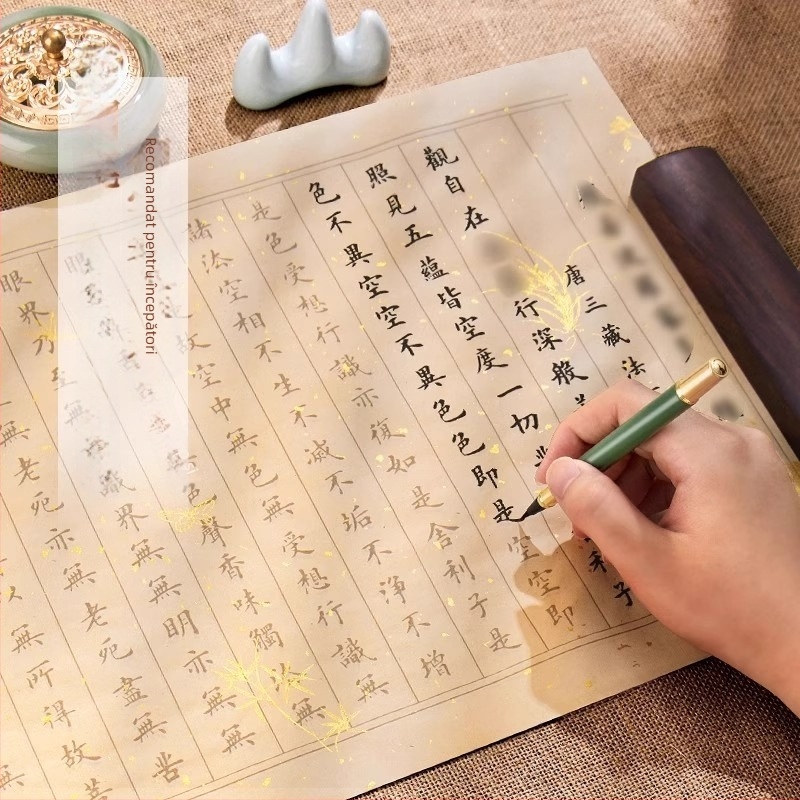 Recomandat pentru începători
唐三藏法
觀自在
行深般
照見五蘊皆空度一切
利子
色不異空空不異色色即是空空即
是色受想行識亦復如是舍利子是
諸法空相不生不滅不垢不淨不增
是故空中無色無受想行識無
眼
無色聲香味觸法無
眼界乃至無意識界無無明亦無無
無老死亦無老死盡無苦
無所得故菩
無